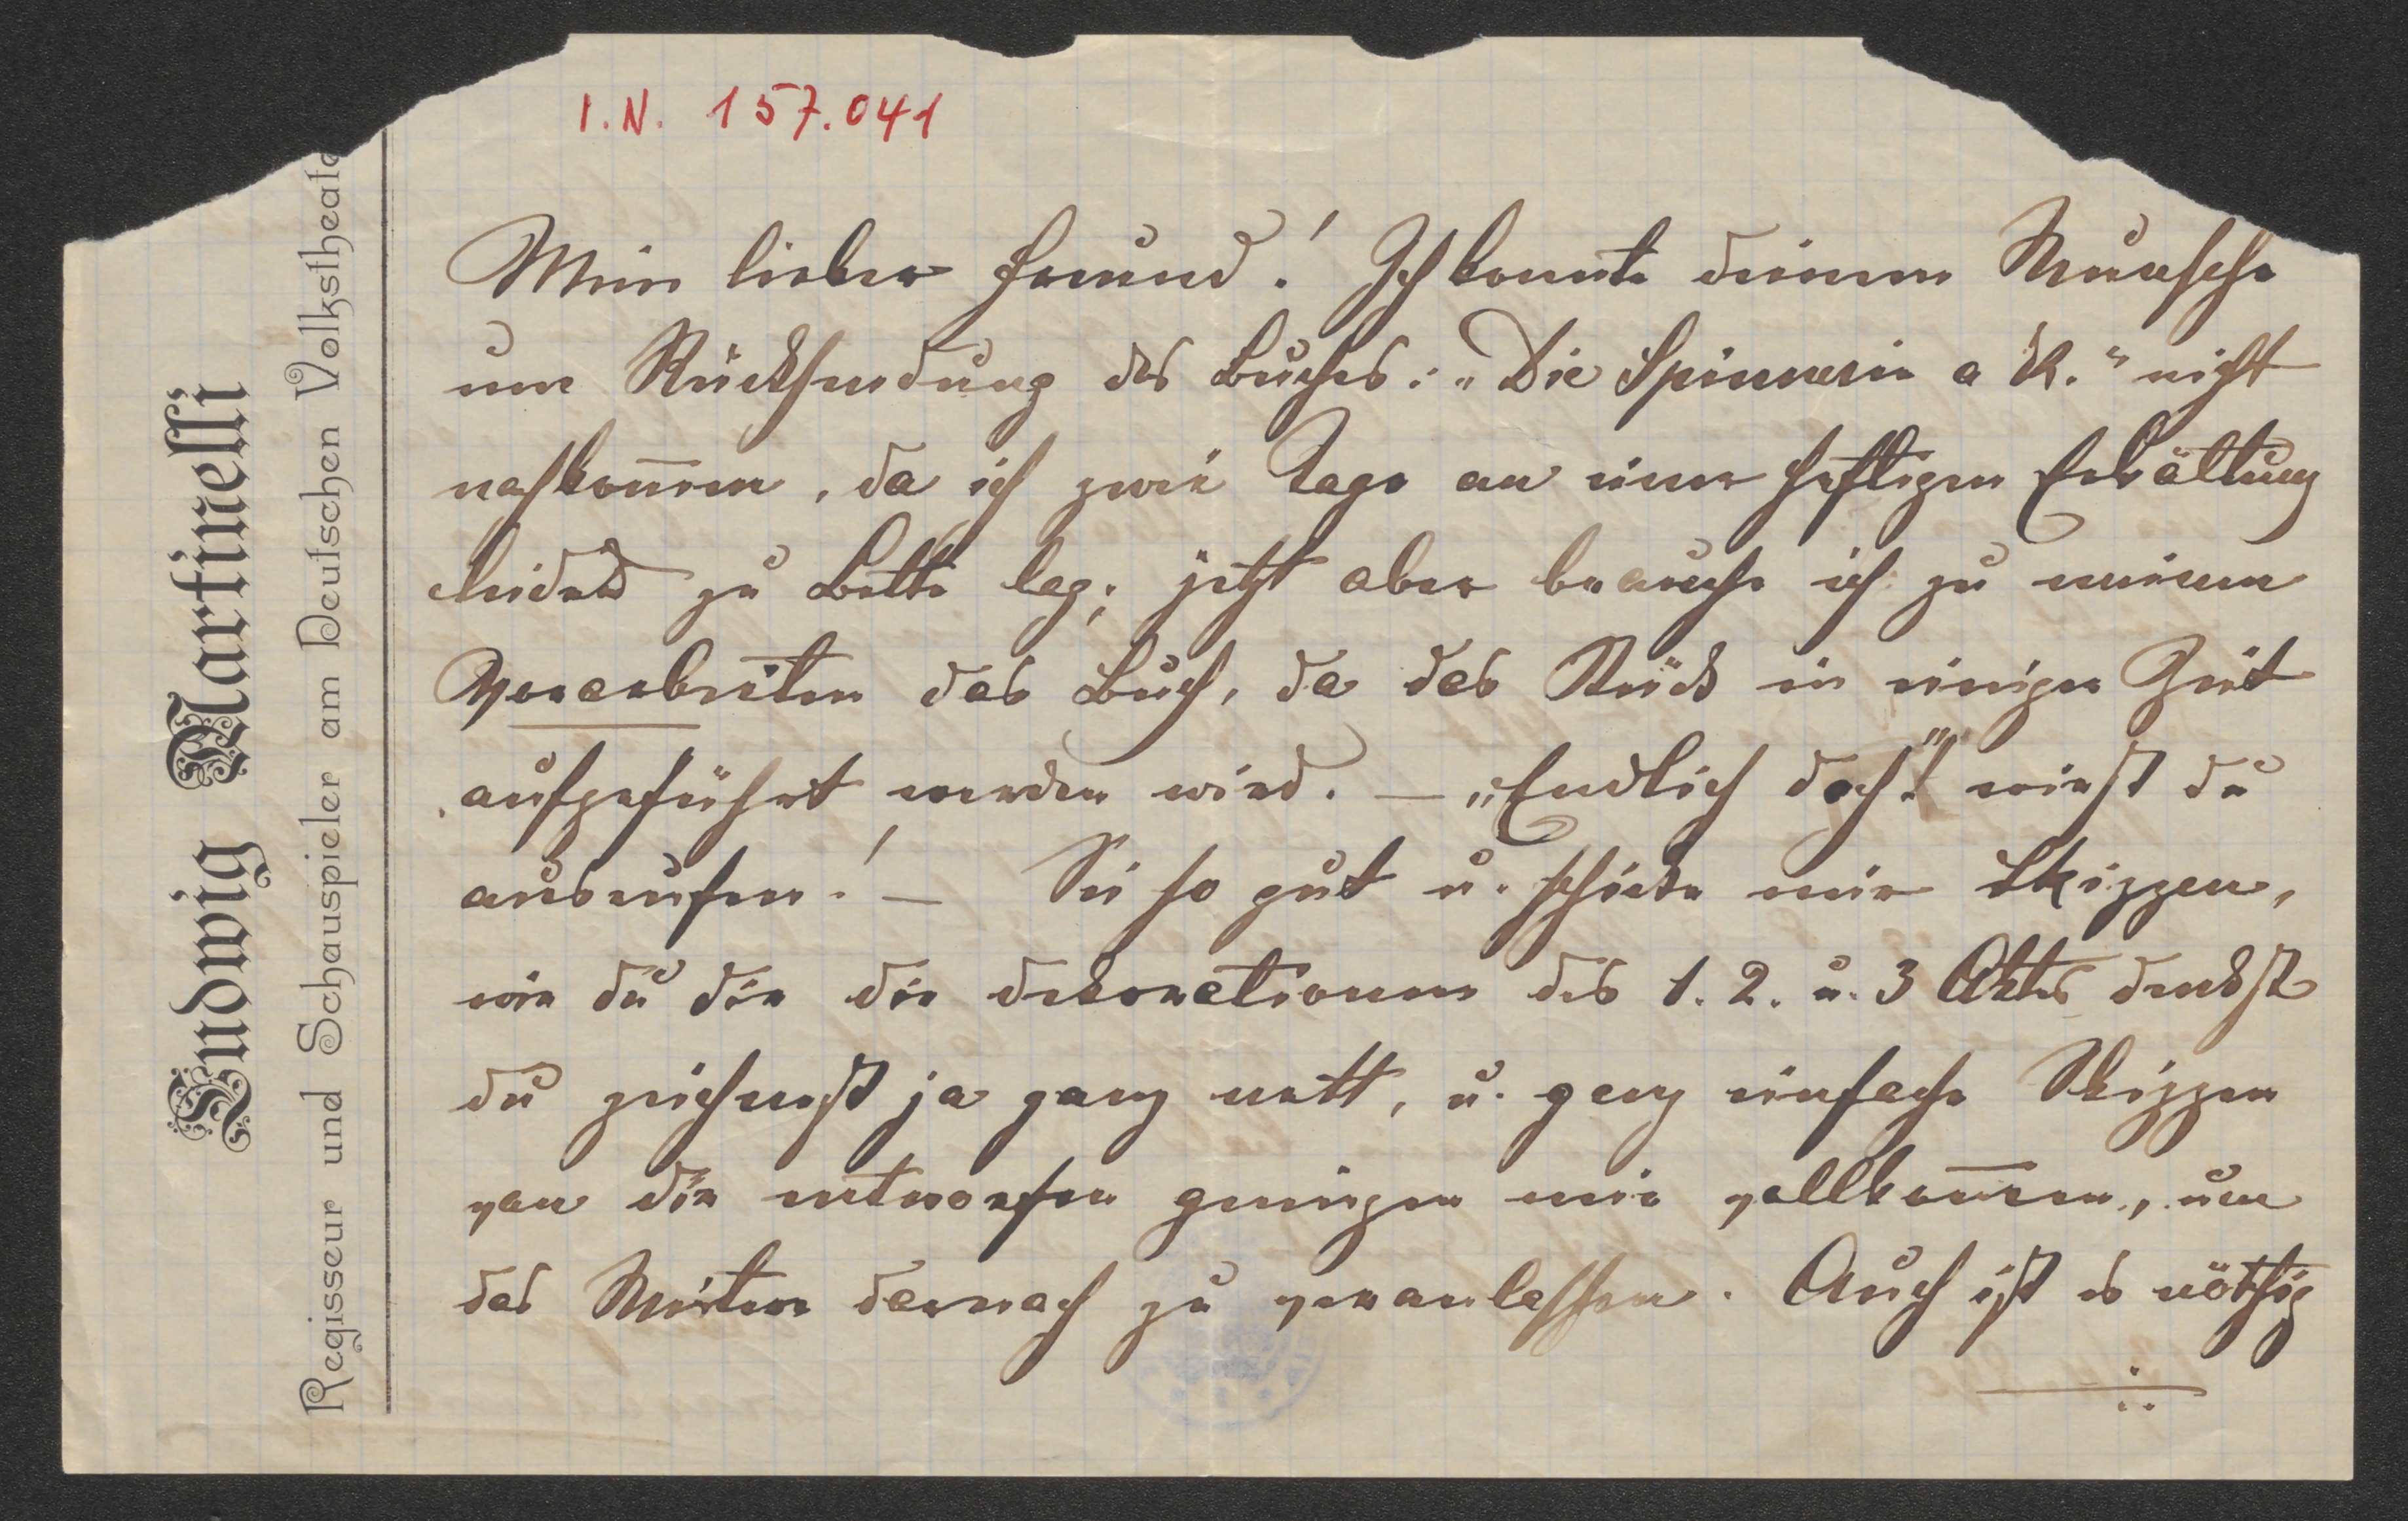 I.N. 157.041
Ludwig Martinelli
Regisseur und Schauspieler am Deutschen Volkstheate
Mein lieber Freund! Ich konnte deinem Wunsche
um Rücksendung des Buches: „Die Spinnerin a K." nicht
nachkom̄en, da ich zwei Tage an einer heftigen Erkältung
leidend zu Bette lag; jetzt aber brauche ich zu meinen
Vorarbeiten das Buch, da das Stück in einiger Zeit
aufgeführt werden wird. — „Endlich doch!" wirst du
ausrufen! — Sei so gut u. schicke mir Skizzen,
wie du dir die Dekorationen des 1. 2. u. 3 Aktes denkst
du zeichnest ja ganz nett, u. ganz einfache Skizzen
von dir entworfen genügen mir vollkom̄en, um
das Weitere darnach zu veranlassen. Auch ist es nöthig